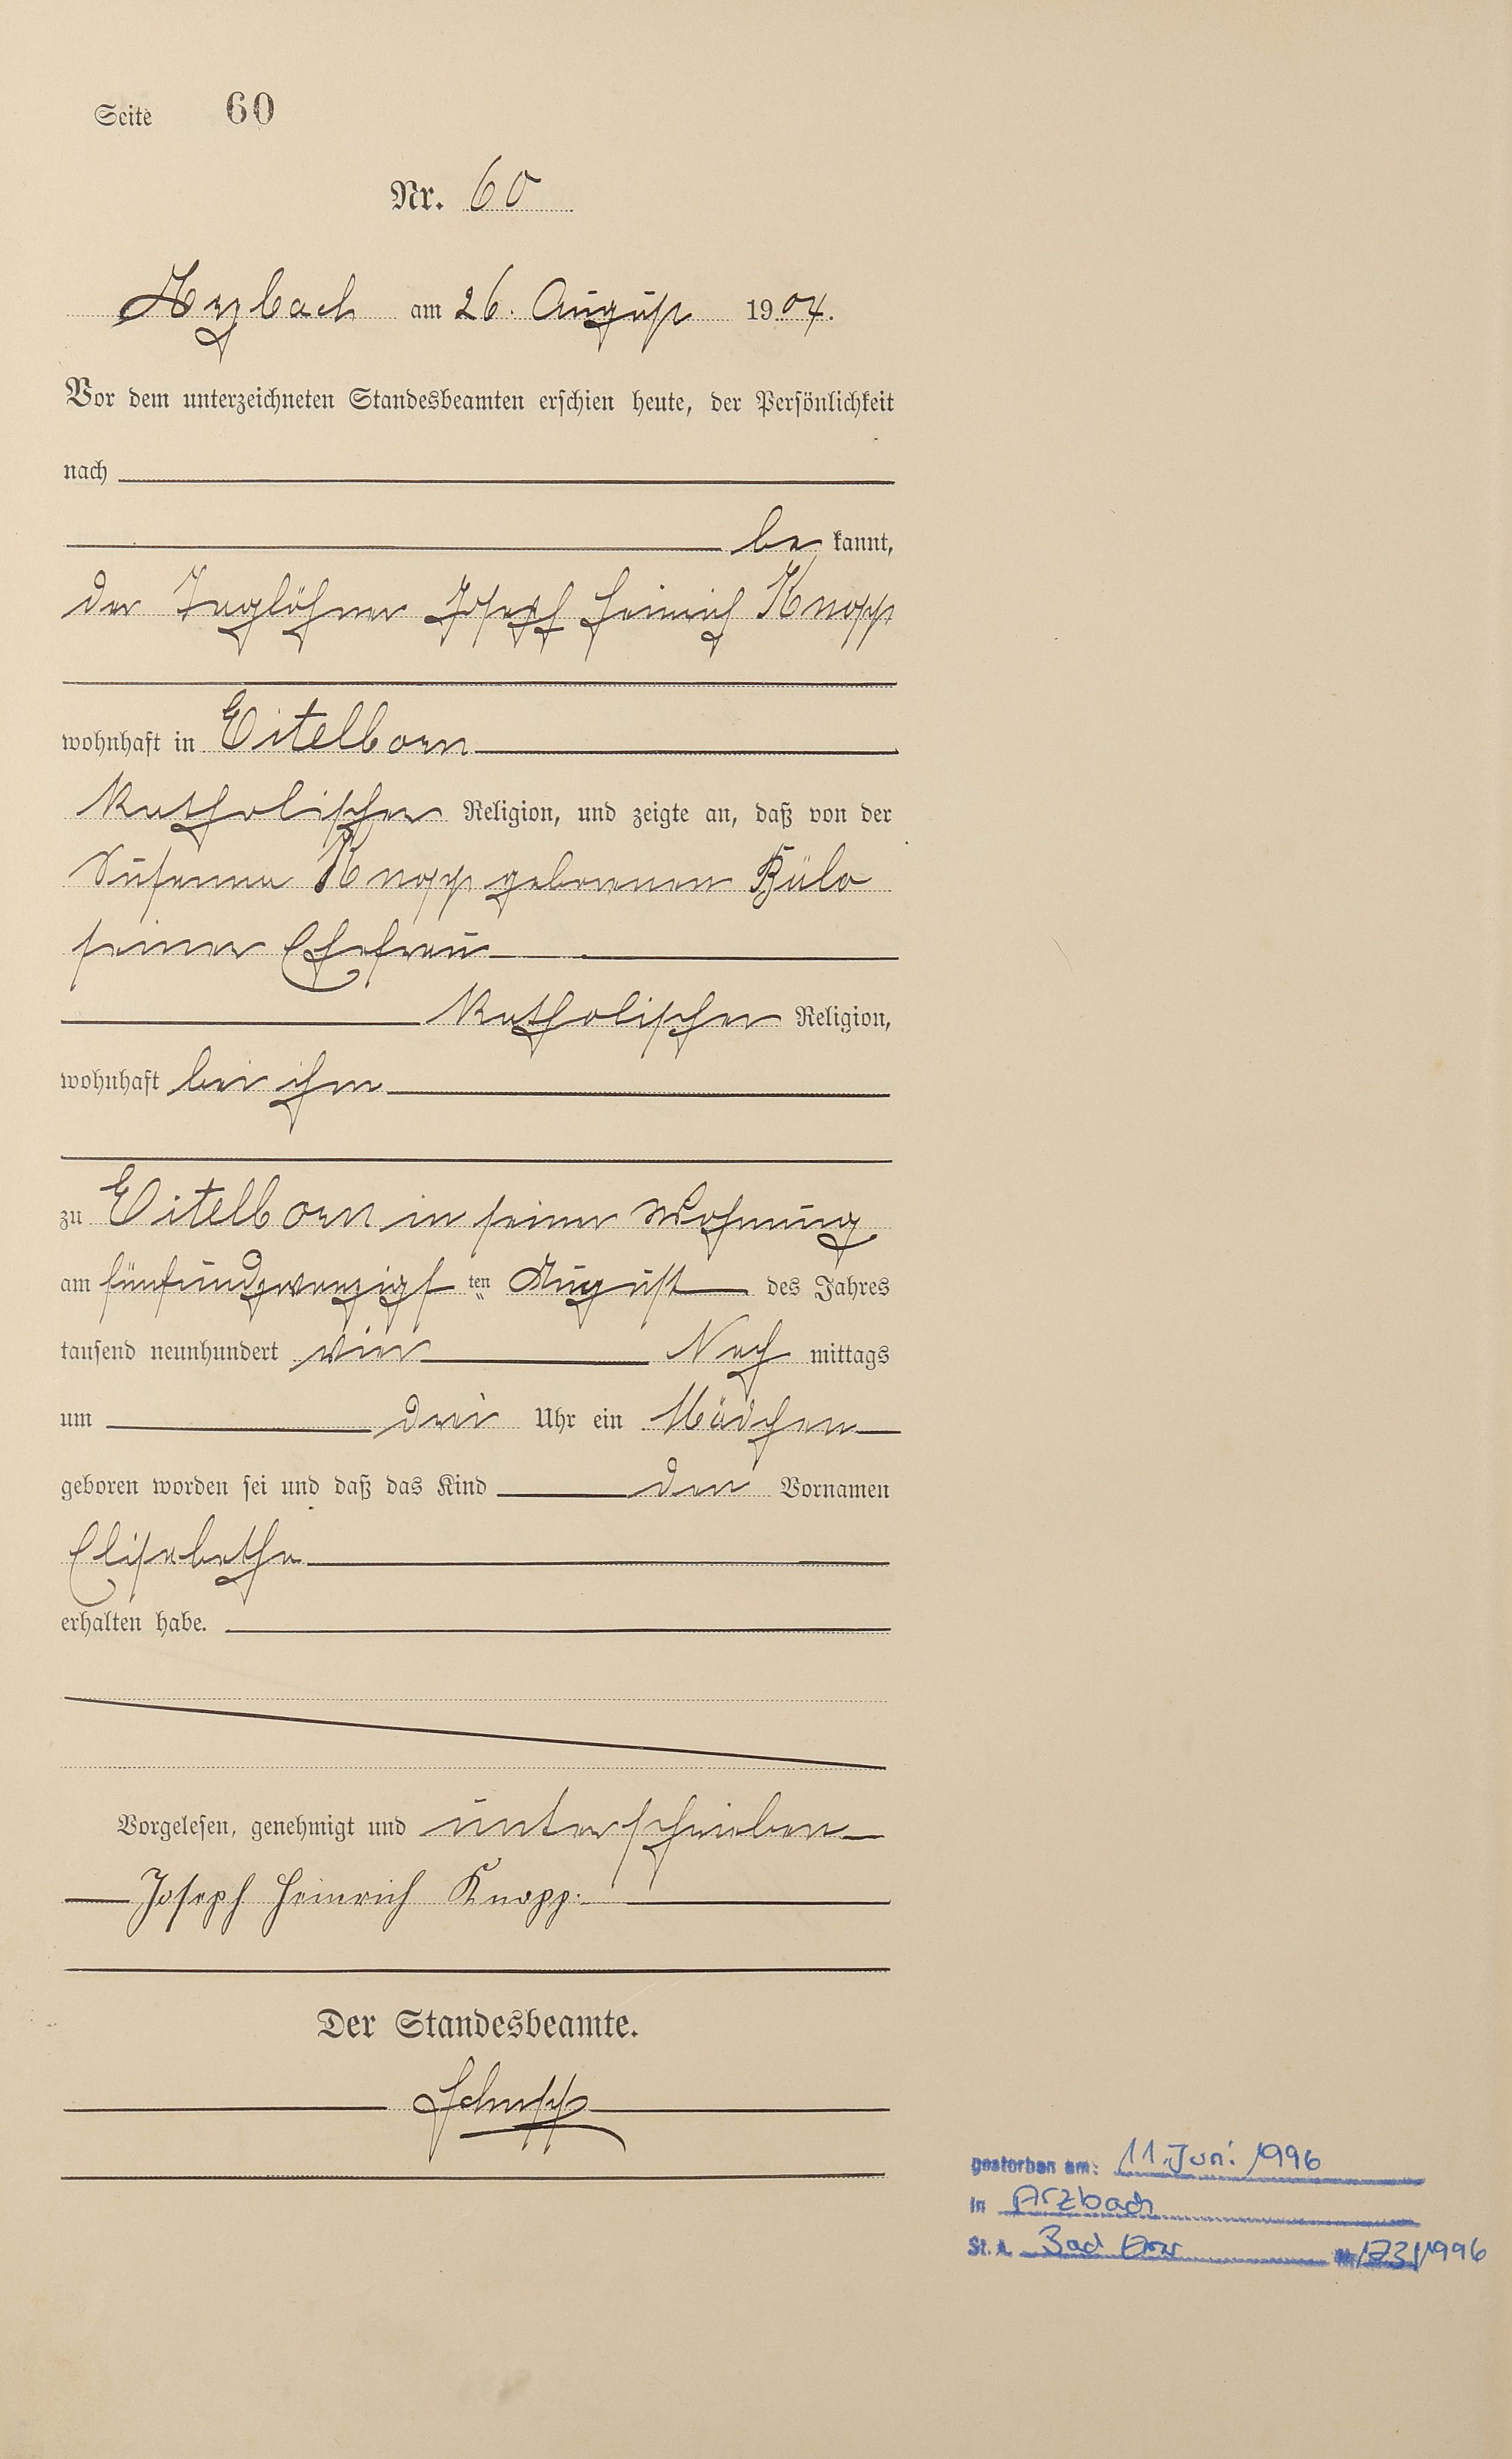 Seite 60
Nr. 60
Arzbach am 26. August 1904.
Vor dem unterzeichneten Standesbeamten erschien heute, der Persönlichkeit
nach
be kannt,
der Taglöhner Joseph Heinrich Knopp
wohnhaft in Eitelborn
katholischer Religion, und zeigte an, daß von der
Susanna Knopp geborenen Bülo
seiner Ehefrau
katholischer Religion,
wohnhaft bei ihm
zu Eitelborn in seiner Wohnung
am fünfundzwanzigsten August des Jahres
tausend neunhundert vier Nach mittags
um drei Uhr ein Mädchen
geboren worden sei und daß das Kind den Vornamen
Elisabetha
erhalten habe.
Vorgelesen, genehmigt und unterschrieben
Joseph Heinrich Knopp.
Der Standesbeamte.
Schupp
gestorben am: 11. Juni 1996
in Arzbach
St. A. Bad Ems Nr. 173/1996